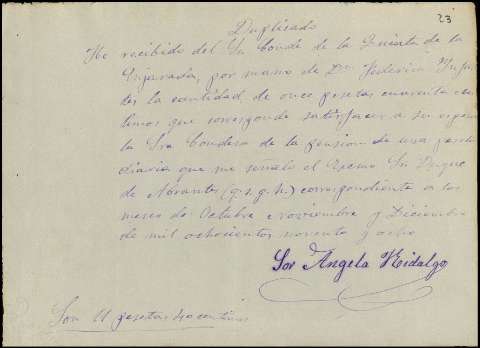 23
Duplicado
He recibido del Sr Conde de la Quinta de la
Enjarada, por mano de Dn Federico
la cantidad de once pesetas cuarenta cen
timos que corresponde satisfacer a su esposa
la Sra Condesa de la pension de una peseta
diaria que me señaló el Excmo Sr Duque
de Abrantes (q.s.g.h.) correspondiente a los
meses de Octubre Noviembre y Diciembre
de mil ochocientos noventa y ocho
Sor Angela Hidalgo
Son 11 pesetas 40 centimos